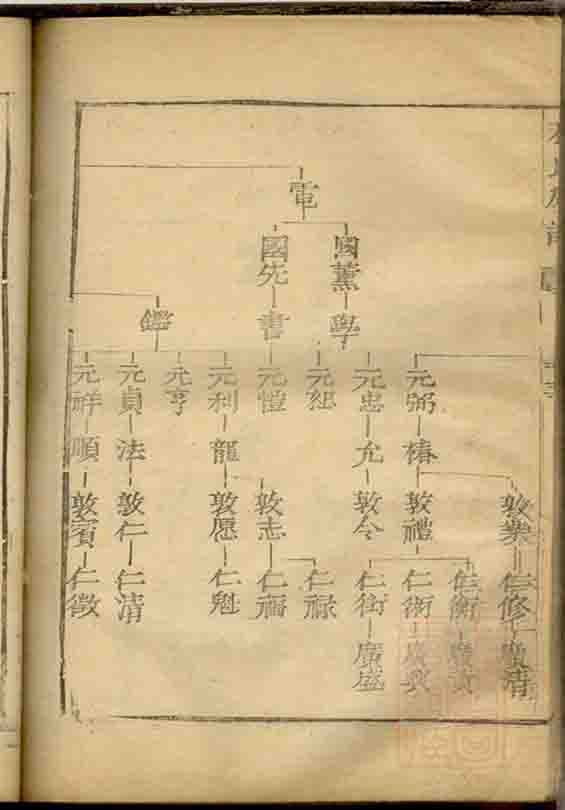 電
國薰
學
國先
書
鑑
元弼
椿
敦禮
元忠
允
敦令
元愷
元利
龍
敦志
敦愿
元亨
元貞
法
敦仁
仁清
元祥
順
敦賓
仁徵
仁修
廣清
仁衛
仁術
廣興
仁街
廣盛
仁祿
仁福
仁魁